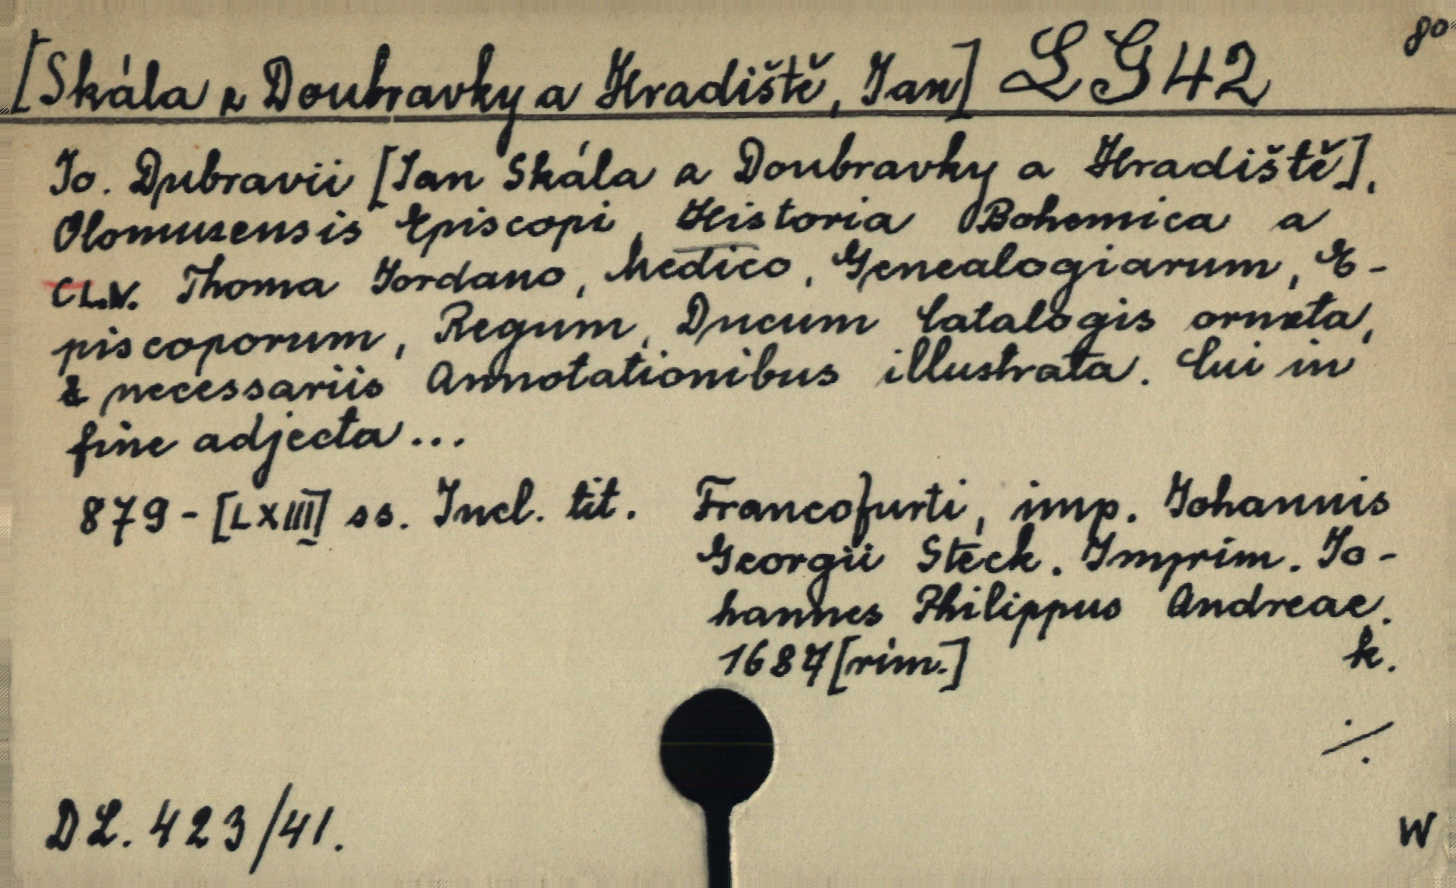 80
[Skála z Doubravky a Hradiště, Jan] LG 42
Jo. Dubravii [Jan Skála a Doubravky a Hradiště],
Olomuzensis Episcopi, Historia Bohemica a
CL.V. Thoma Jordano, Medico, Genealogiarum, E-
piscoporum, Regum, Ducum Catalogis ornata,
& necessariis Annotationibus illustrata. Cui in
fine adjecta...
879 - [LXIII] ss. Incl. tit. Francofurti, imp. Johannis
Georgii Steck. Imprim. Jo-
hannes Philippus Andreae.
1687 [rim.] k.
./.
DL. 423/41. W